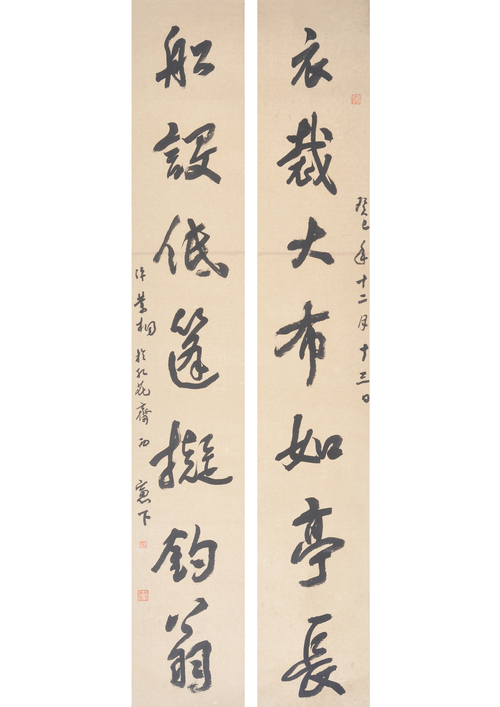 衣裁大布如亭長
癸巳年十二月十三日
船設低篷擬釣翁
於紅花齋西窗下